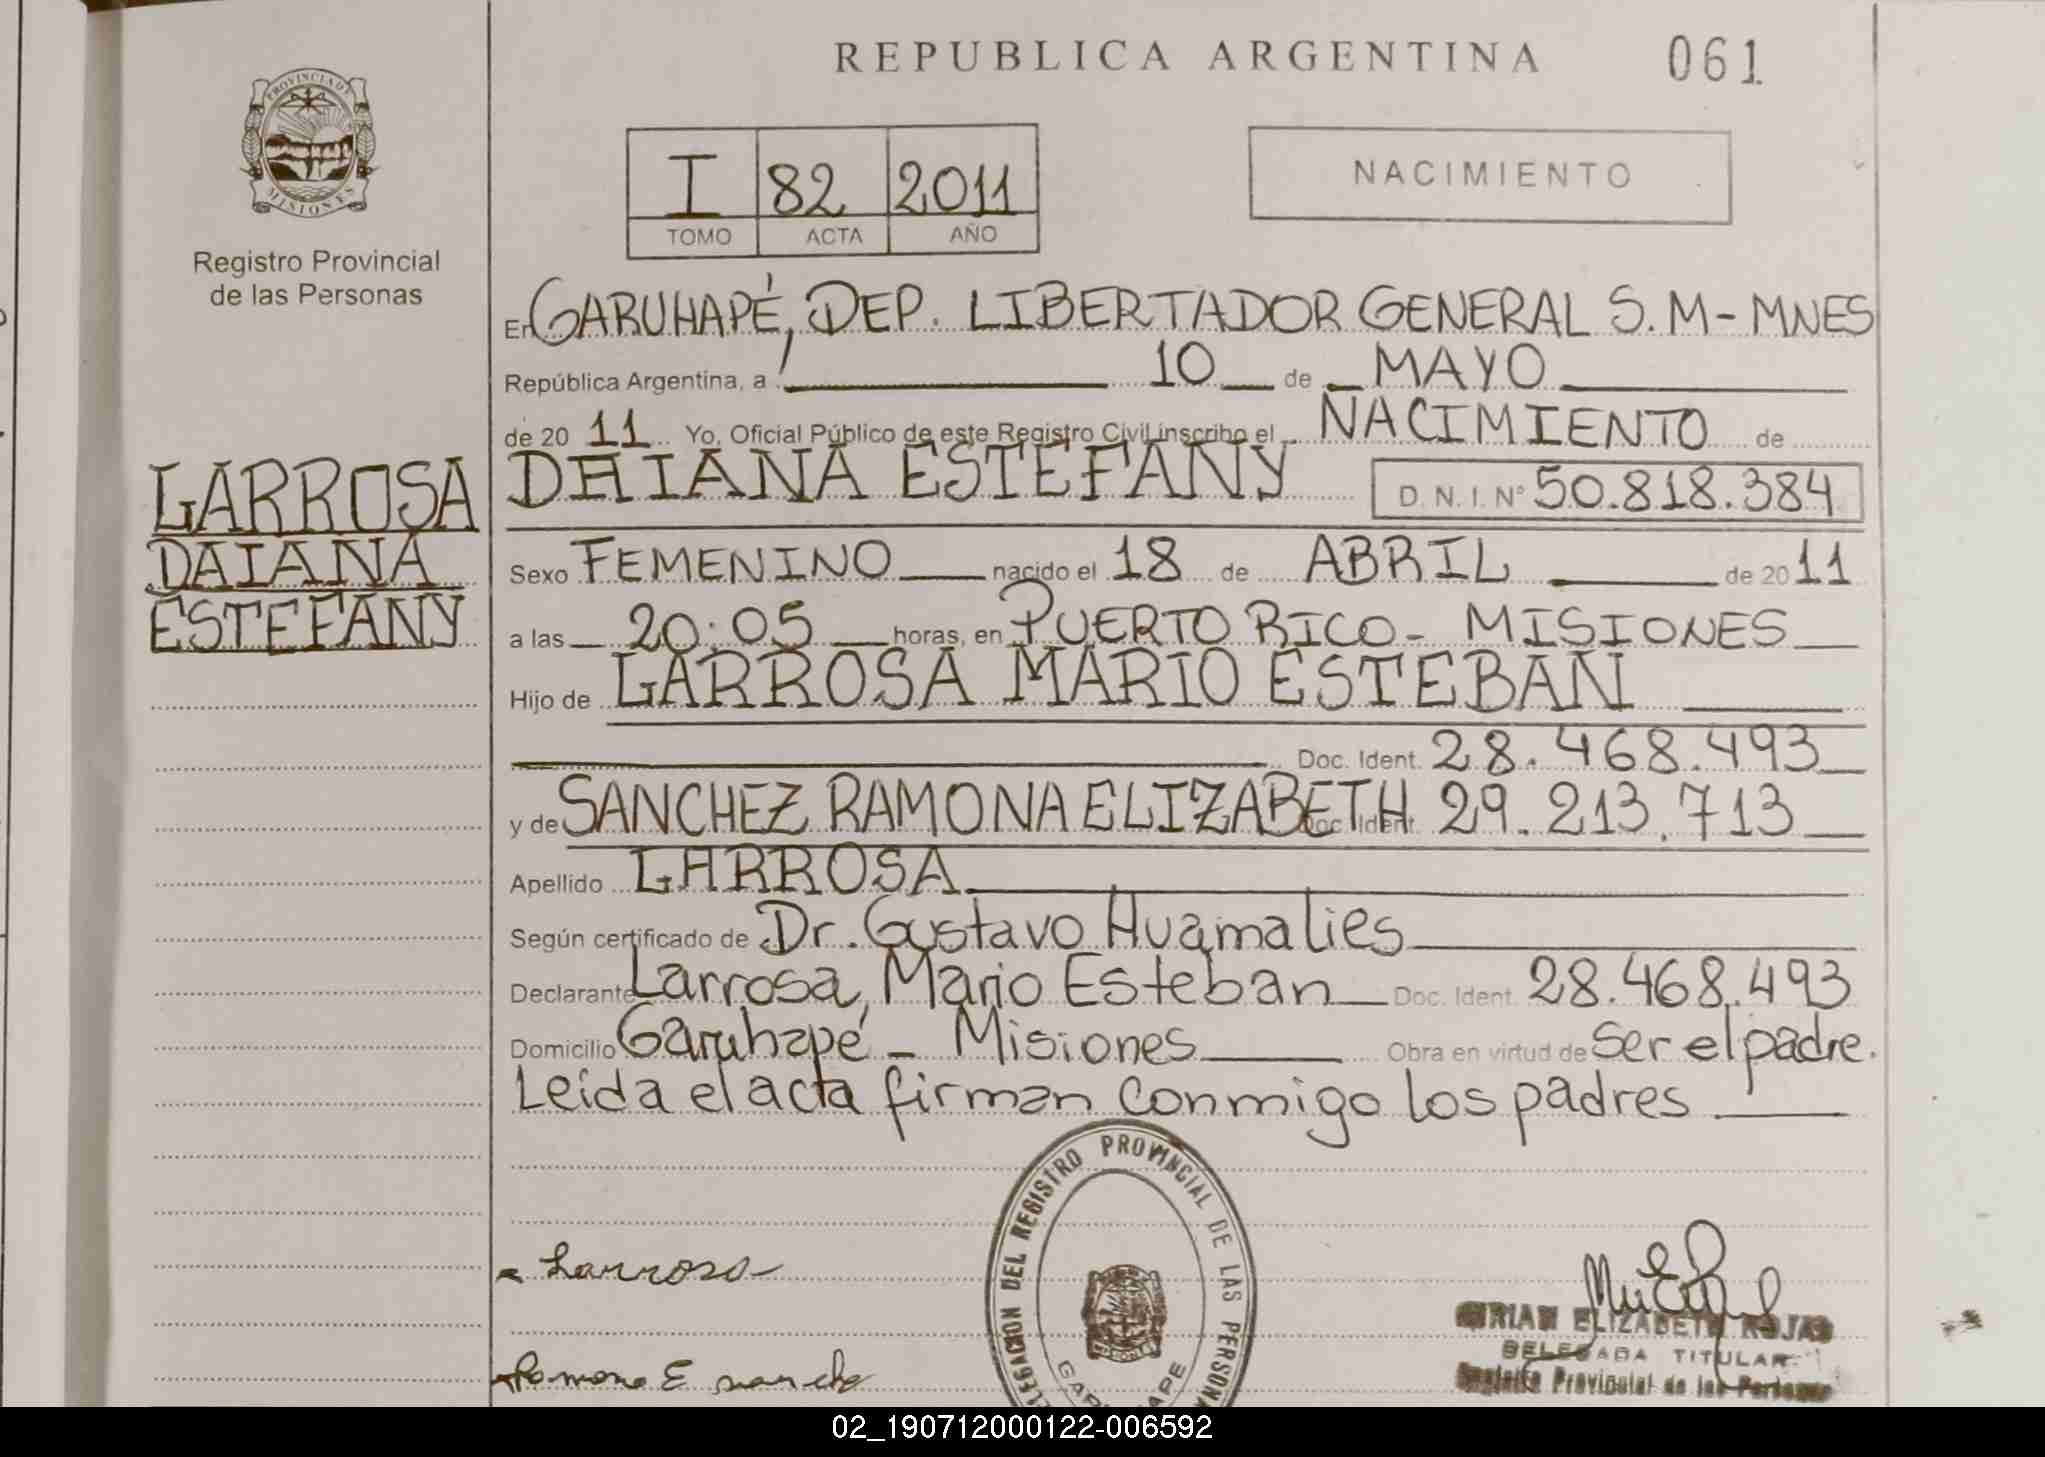 REPUBLICA ARGENTINA 061
PROVINCIA DE MISIONES
Registro Provincial
de las Personas
I 82 2011
TOMO ACTA AÑO
NACIMIENTO
En GARUHAPÉ, DEP. LIBERTADOR GENERAL S.M - MNES
República Argentina, a 10 de MAYO
de 20 11 Yo, Oficial Público de este Registro Civil inscribo el NACIMIENTO de
DAIANA ESTEFANY D. N. I. Nº 50.818.384
LARROSA
DAIANA
ESTEFANY
Sexo FEMENINO nacido el 18 de ABRIL de 20 11
a las 20:05 horas, en PUERTO RICO - MISIONES
Hijo de LARROSA MARIO ESTEBAN
Doc. Ident. 28.468.493
y de SANCHEZ RAMONA ELIZABETH Doc. Ident. 29.213.713
Apellido LARROSA
Según certificado de Dr. Gustavo Huamalies
Declarante Larrosa, Mario Esteban Doc. Ident. 28.468.493
Domicilio Garuhapé - Misiones Obra en virtud de ser el padre.
Leída el acta firman conmigo los padres
DELEGACION DEL REGISTRO PROVINCIAL DE LAS PERSONAS
GARUHAPE
MISIONES
Larrosa
Ramona E
MIRIAN ELIZABETH ROJAS
DELEGADA TITULAR
Registro Provincial de las Personas
02_190712000122-006592